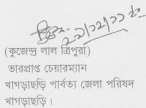 (কুজেন্দ্র লাল ত্রিপুরা)
ভারপ্রাপ্ত চেয়ারম্যান
খাগড়াছড়ি পার্বত্য জেলা পরিষদ
খাগড়াছড়ি।